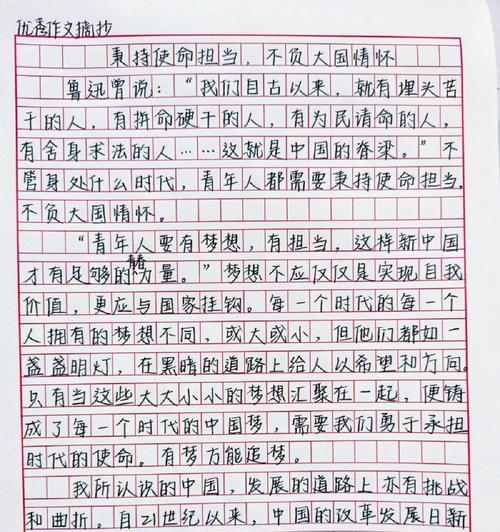 优秀作文摘抄
秉持使命担当，不负大国情怀
鲁迅曾说：“我们自古以来，就有埋头苦
干的人，有拼命硬干的人，有为民请命的人，
有舍身求法的人……这就是中国的脊梁。”不
管身处什么时代，青年人都需要秉持使命担当，
不负大国情怀。
“青年人要有梦想，有担当，这样新中国
才有足够的青春力量。”梦想不应仅仅是实现自我
价值，更应与国家挂钩。每一个时代的每一个
人拥有的梦想不同，或大或小，但他们都如一
盏盏明灯，在黑暗的道路上给人以希望和方向。
只有当这些大大小小的梦想汇聚在一起，便铸
成了每一个时代的中国梦，需要我们勇于承担
时代的使命。有梦方能追梦。
我所认识的中国，发展的道路上亦有挑战
和曲折。自21世纪以来，中国的改革发展日新